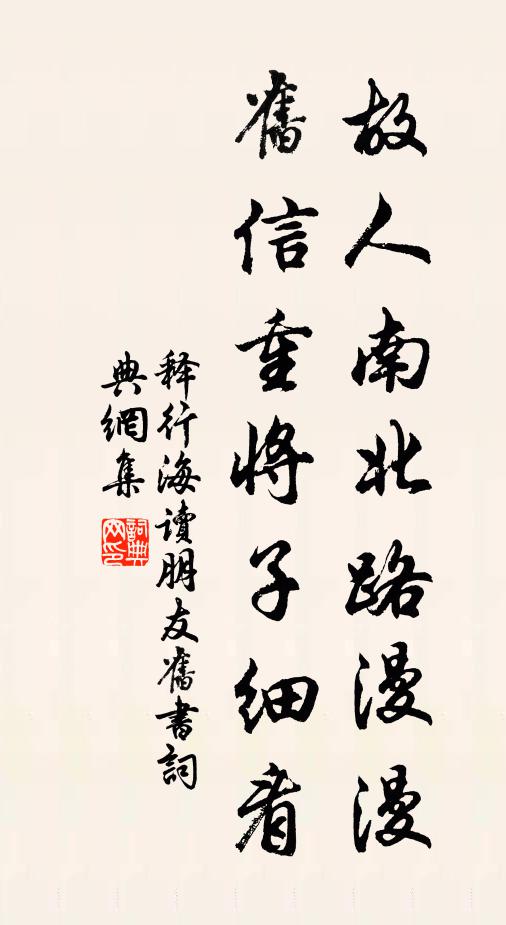 故人南北路漫漫
舊信重將子細看
释行海讀朋友舊書詞
典網集
詞典
网印